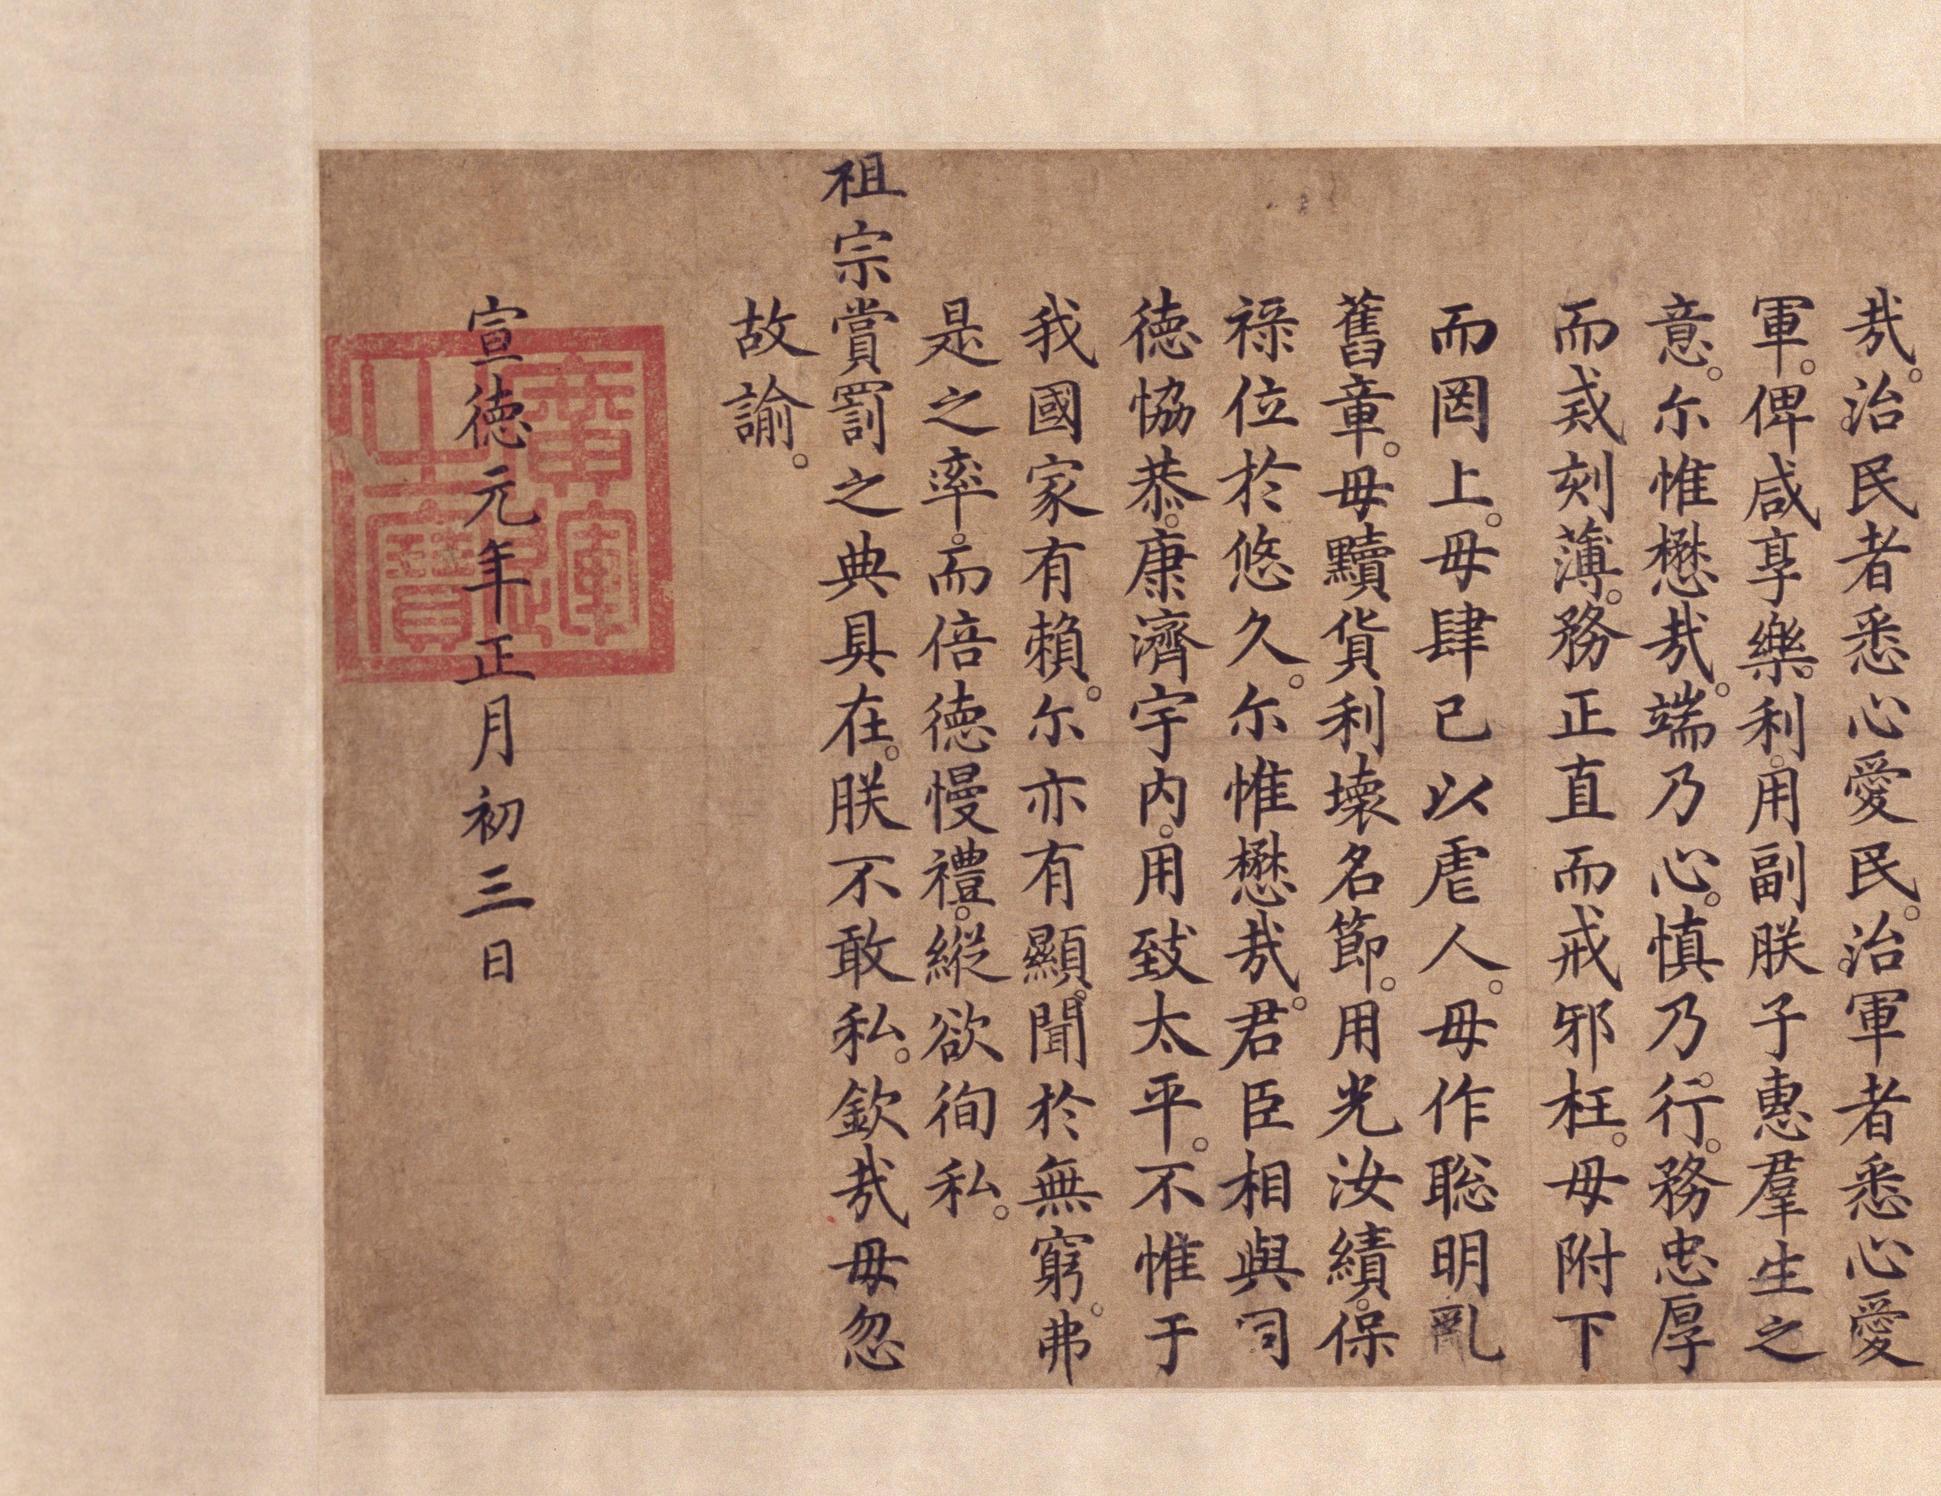 哉。治民者悉心愛民。治軍者悉心愛
軍。俾咸享樂。利用副朕子惠羣生之
意。尔惟懋哉。端乃心。慎乃行。務忠厚
而戒刻薄。務正直而戒邪枉。毋附下
而罔上。毋肆己以虐人。毋作聡明亂
舊章。毋黷貨利壊名節。用光汝績。保
祿位於悠久。尔惟懋哉。君臣相與同
徳恊恭。康濟宇内。用致太平。不惟于
我國家有賴。尔亦有顯。聞於無窮。弗
是之率。而倍徳慢禮。縦欲徇私。
祖宗賞罰之典具在。朕不敢私。欽哉毋忽
故諭。
宣徳元年正月初三日
廣運之寶